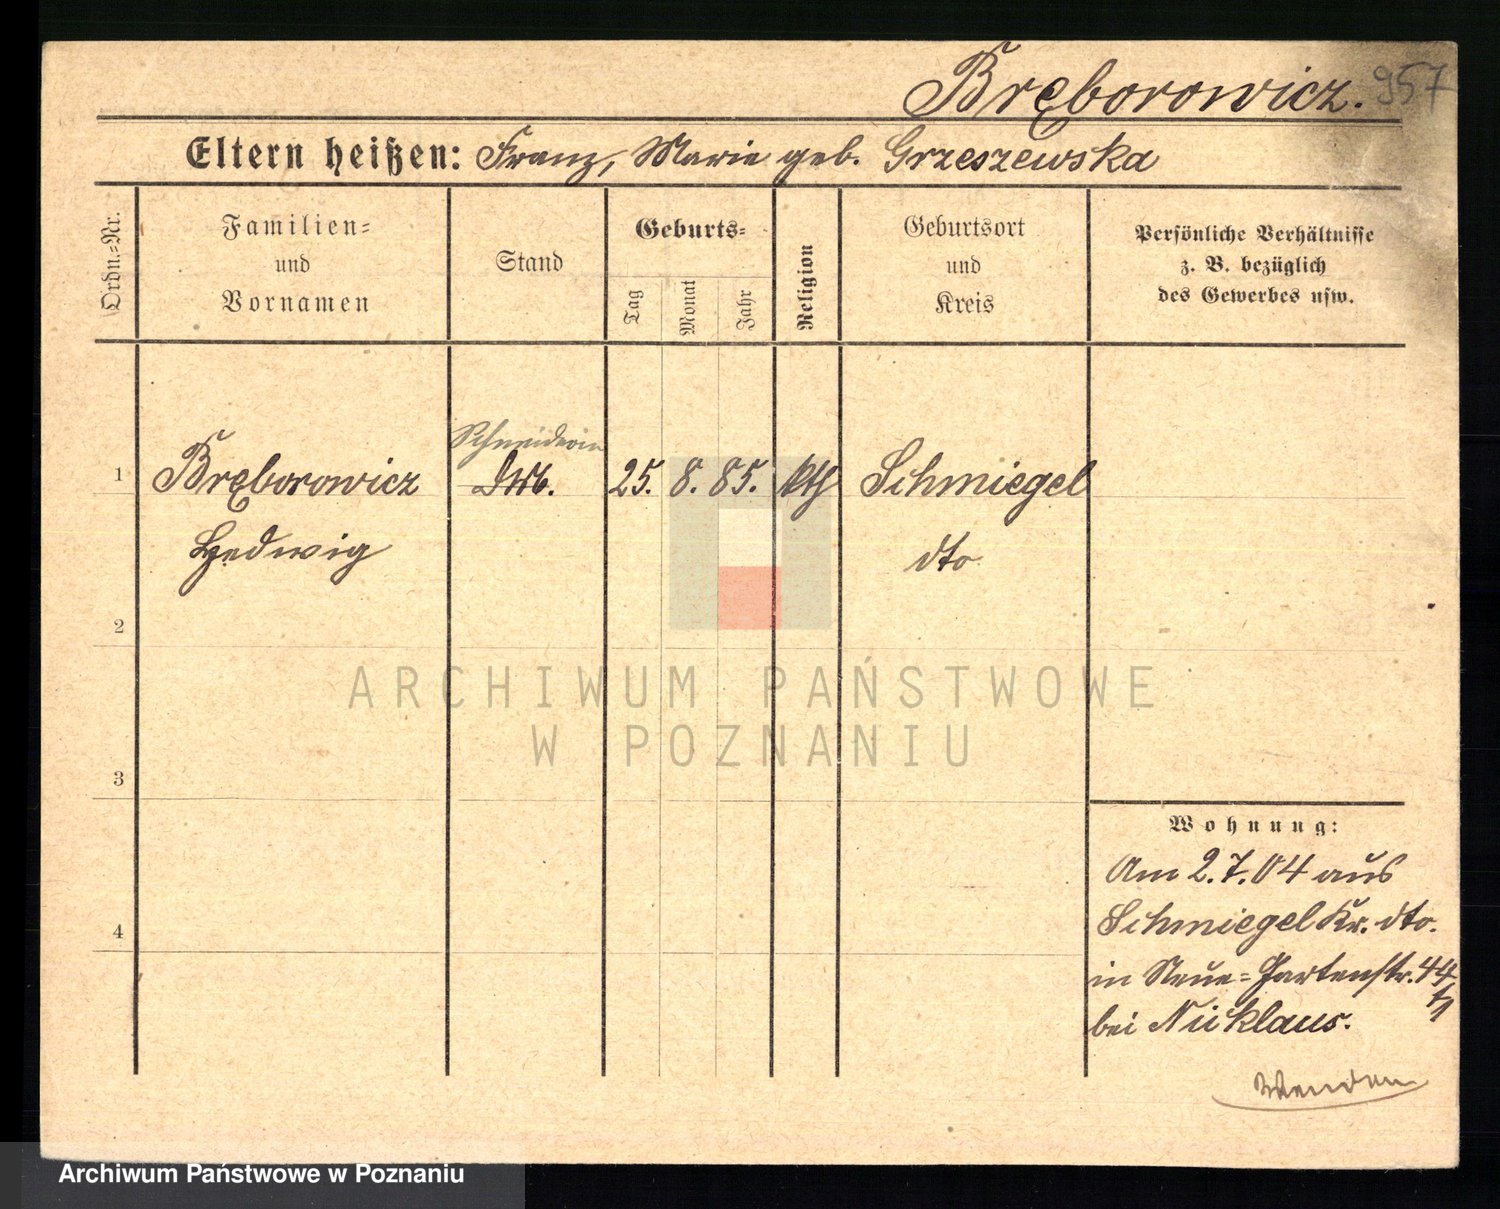 Bręborowicz. 957
Eltern heißen: Franz, Marie geb. Grzeszewska
Ordn.-Nr.
Familien-
und
Vornamen
Stand
Geburts-
Tag
Monat
Jahr
Religion
Geburtsort
und
Kreis
Persönliche Verhältnisse
z. B. bezüglich
des Gewerbes usw.
Schneiderin
1 Bręborowicz 25. 8. 85. kth Schmiegel
Hedwig dto
2
3
4
Wohnung:
Am 2.7.04 aus
Schmiegel Kr. dto.
in Neue-Gartenstr. 44
bei Nicklaus.
Wenden
ARCHIWUM PAŃSTWOWE
W POZNANIU
Archiwum Państwowe w Poznaniu